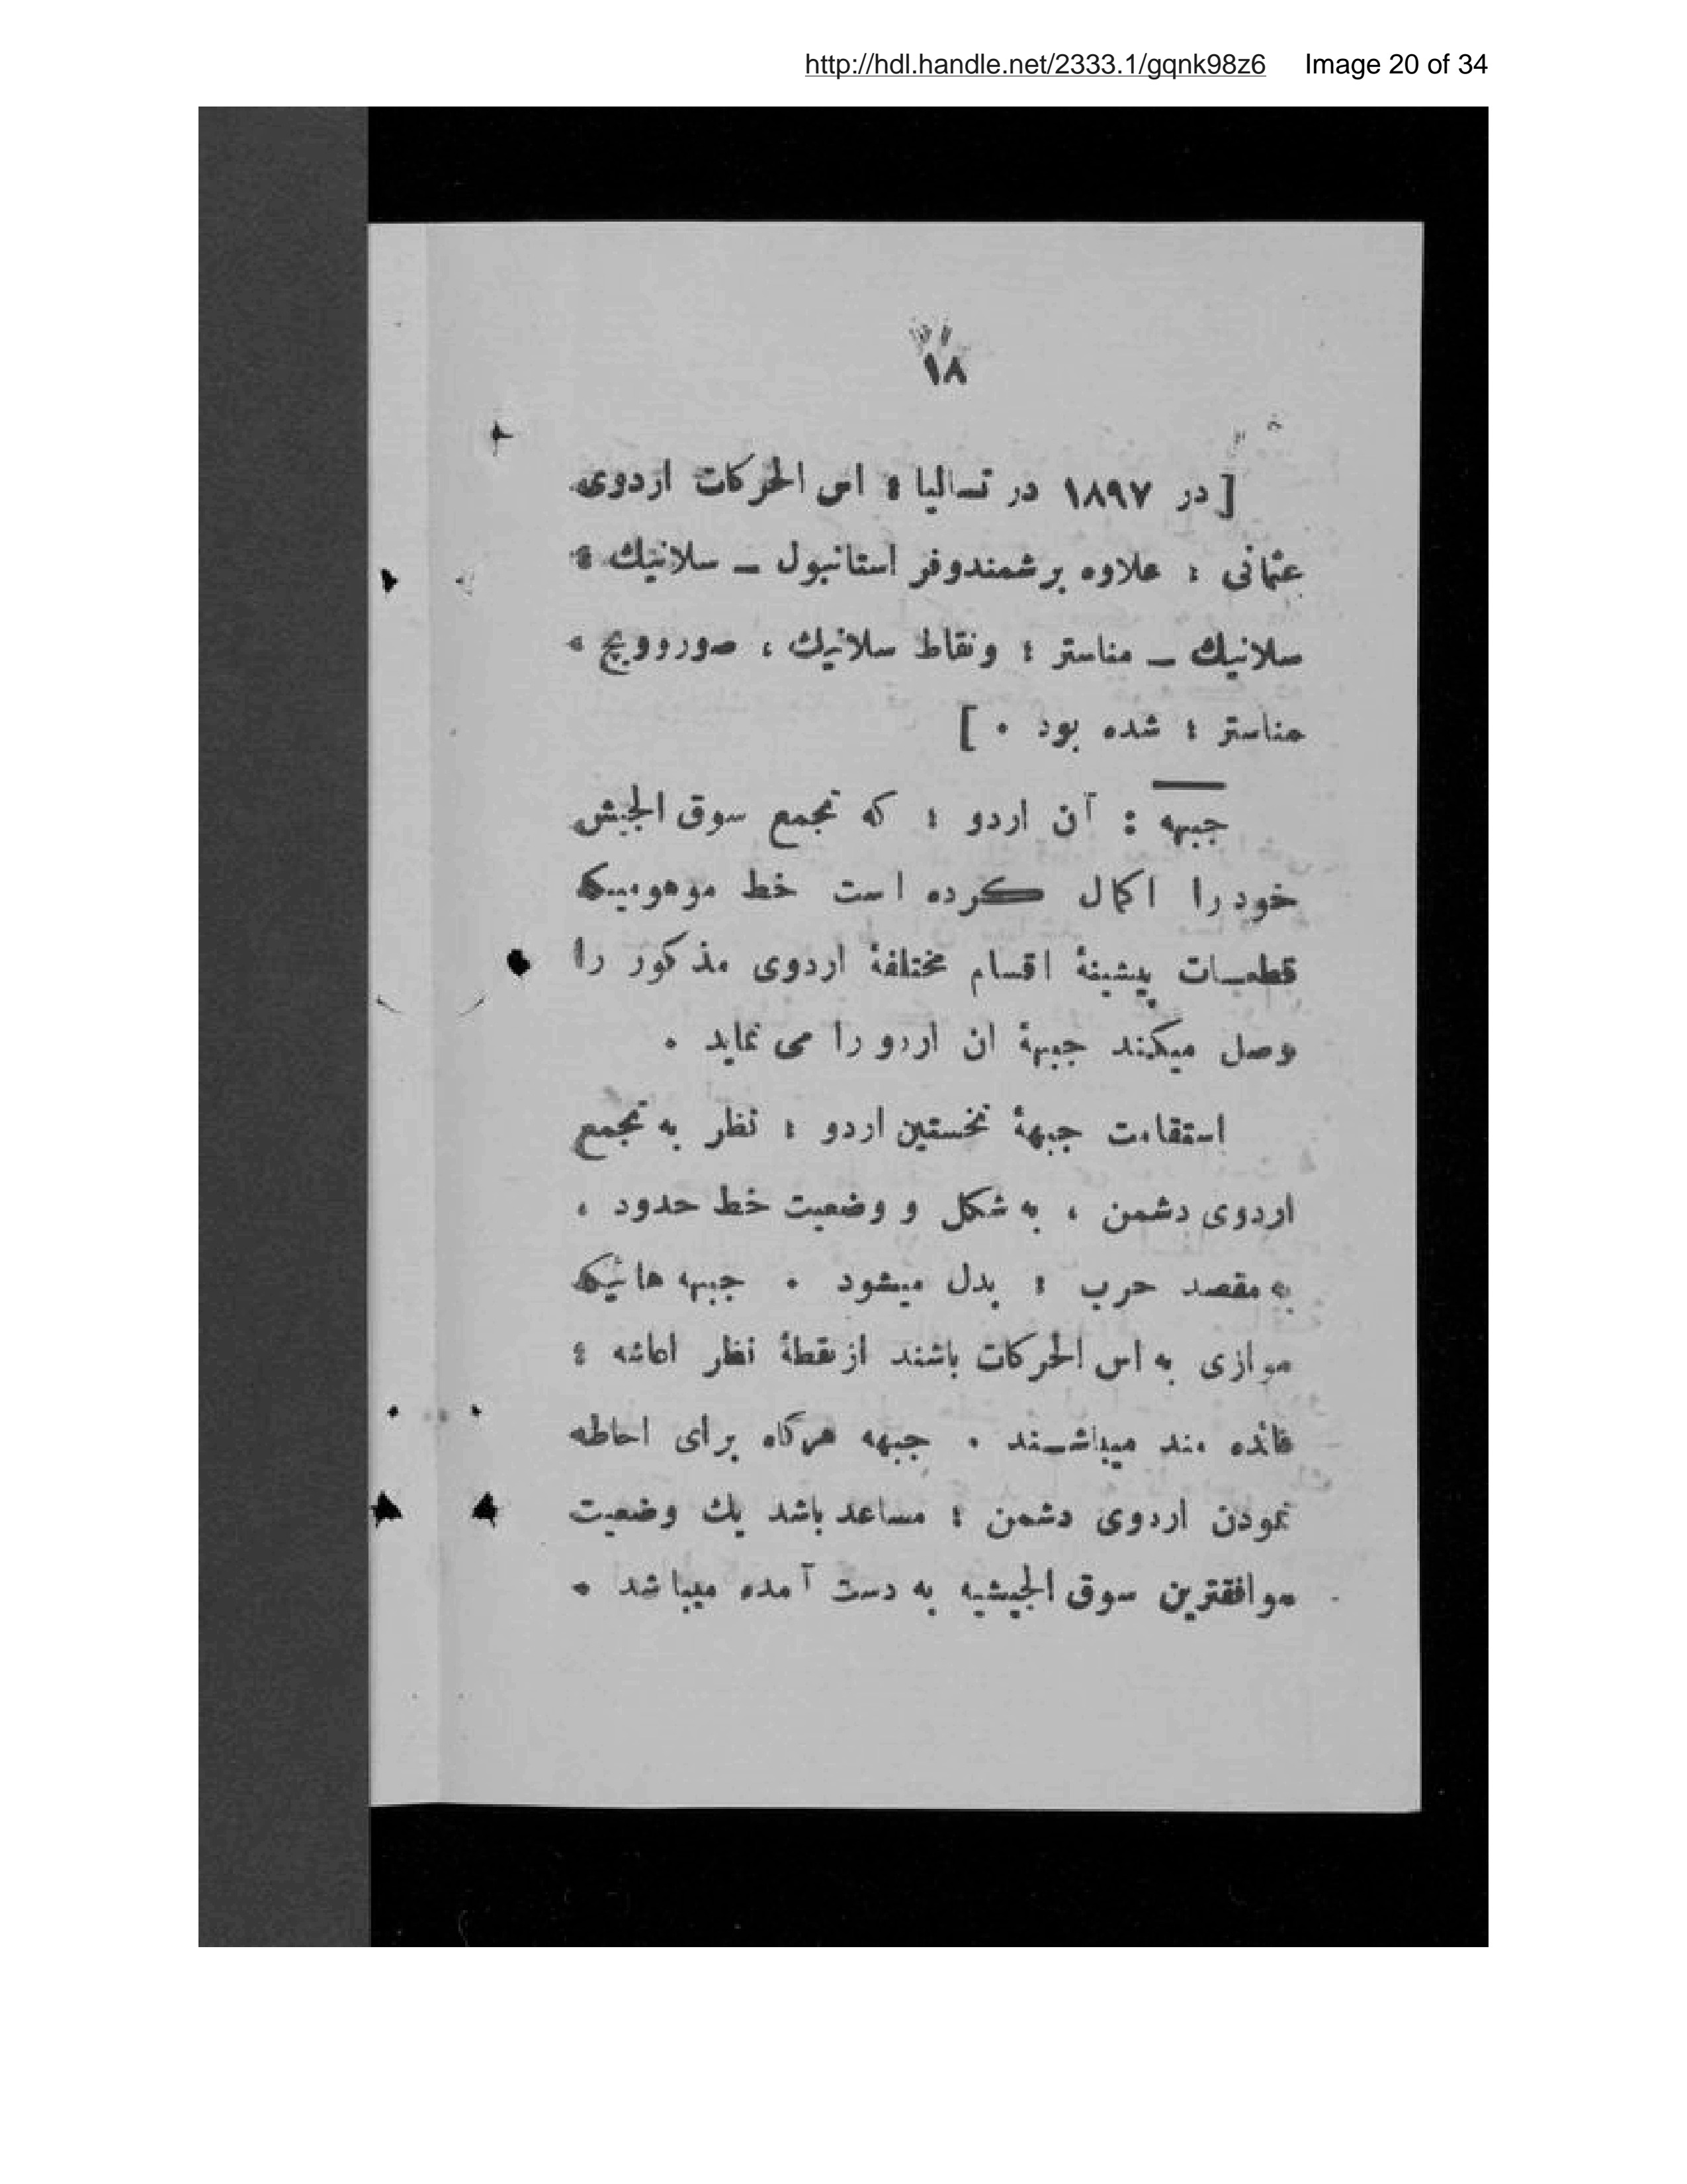 http://hdl.handle.net/2333.1/gqnk98z6 Image 20 of 34
١٨
[ در ١٨٩٧ در تسالیا ؛ اس الحرکات اردوی
عثمانی ؛ علاوه بر شمندوفر استانبول ـ سلانیك ؛
سلانیك ـ مناستر ؛ ونقاط سلانیك ، صوروویچ ،
مناستر ؛ شده بود . ]
جبهه : آن اردو ؛ که تجمع سوق الجیش
خود را اکمال کرده است خط موهومیکه
قطعات پیشینهٔ اقسام مختلفهٔ اردوی مذکور را
وصل میکند جبههٔ ان اردو را می نماید .
استقامت جبههٔ نخستین اردو ؛ نظر به تجمع
اردوی دشمن ، به شکل و وضعیت خط حدود ،
به مقصد حرب ؛ بدل میشود . جبهه هائیکه
موازی به اس الحرکات باشند از نقطهٔ نظر اعاشه ؛
فائده مند میباشند . جبهه هرکاه برای احاطه
نمودن اردوی دشمن ؛ مساعد باشد یك وضعیت
موافقترین سوق الجیشیه به دست آمده میباشد .